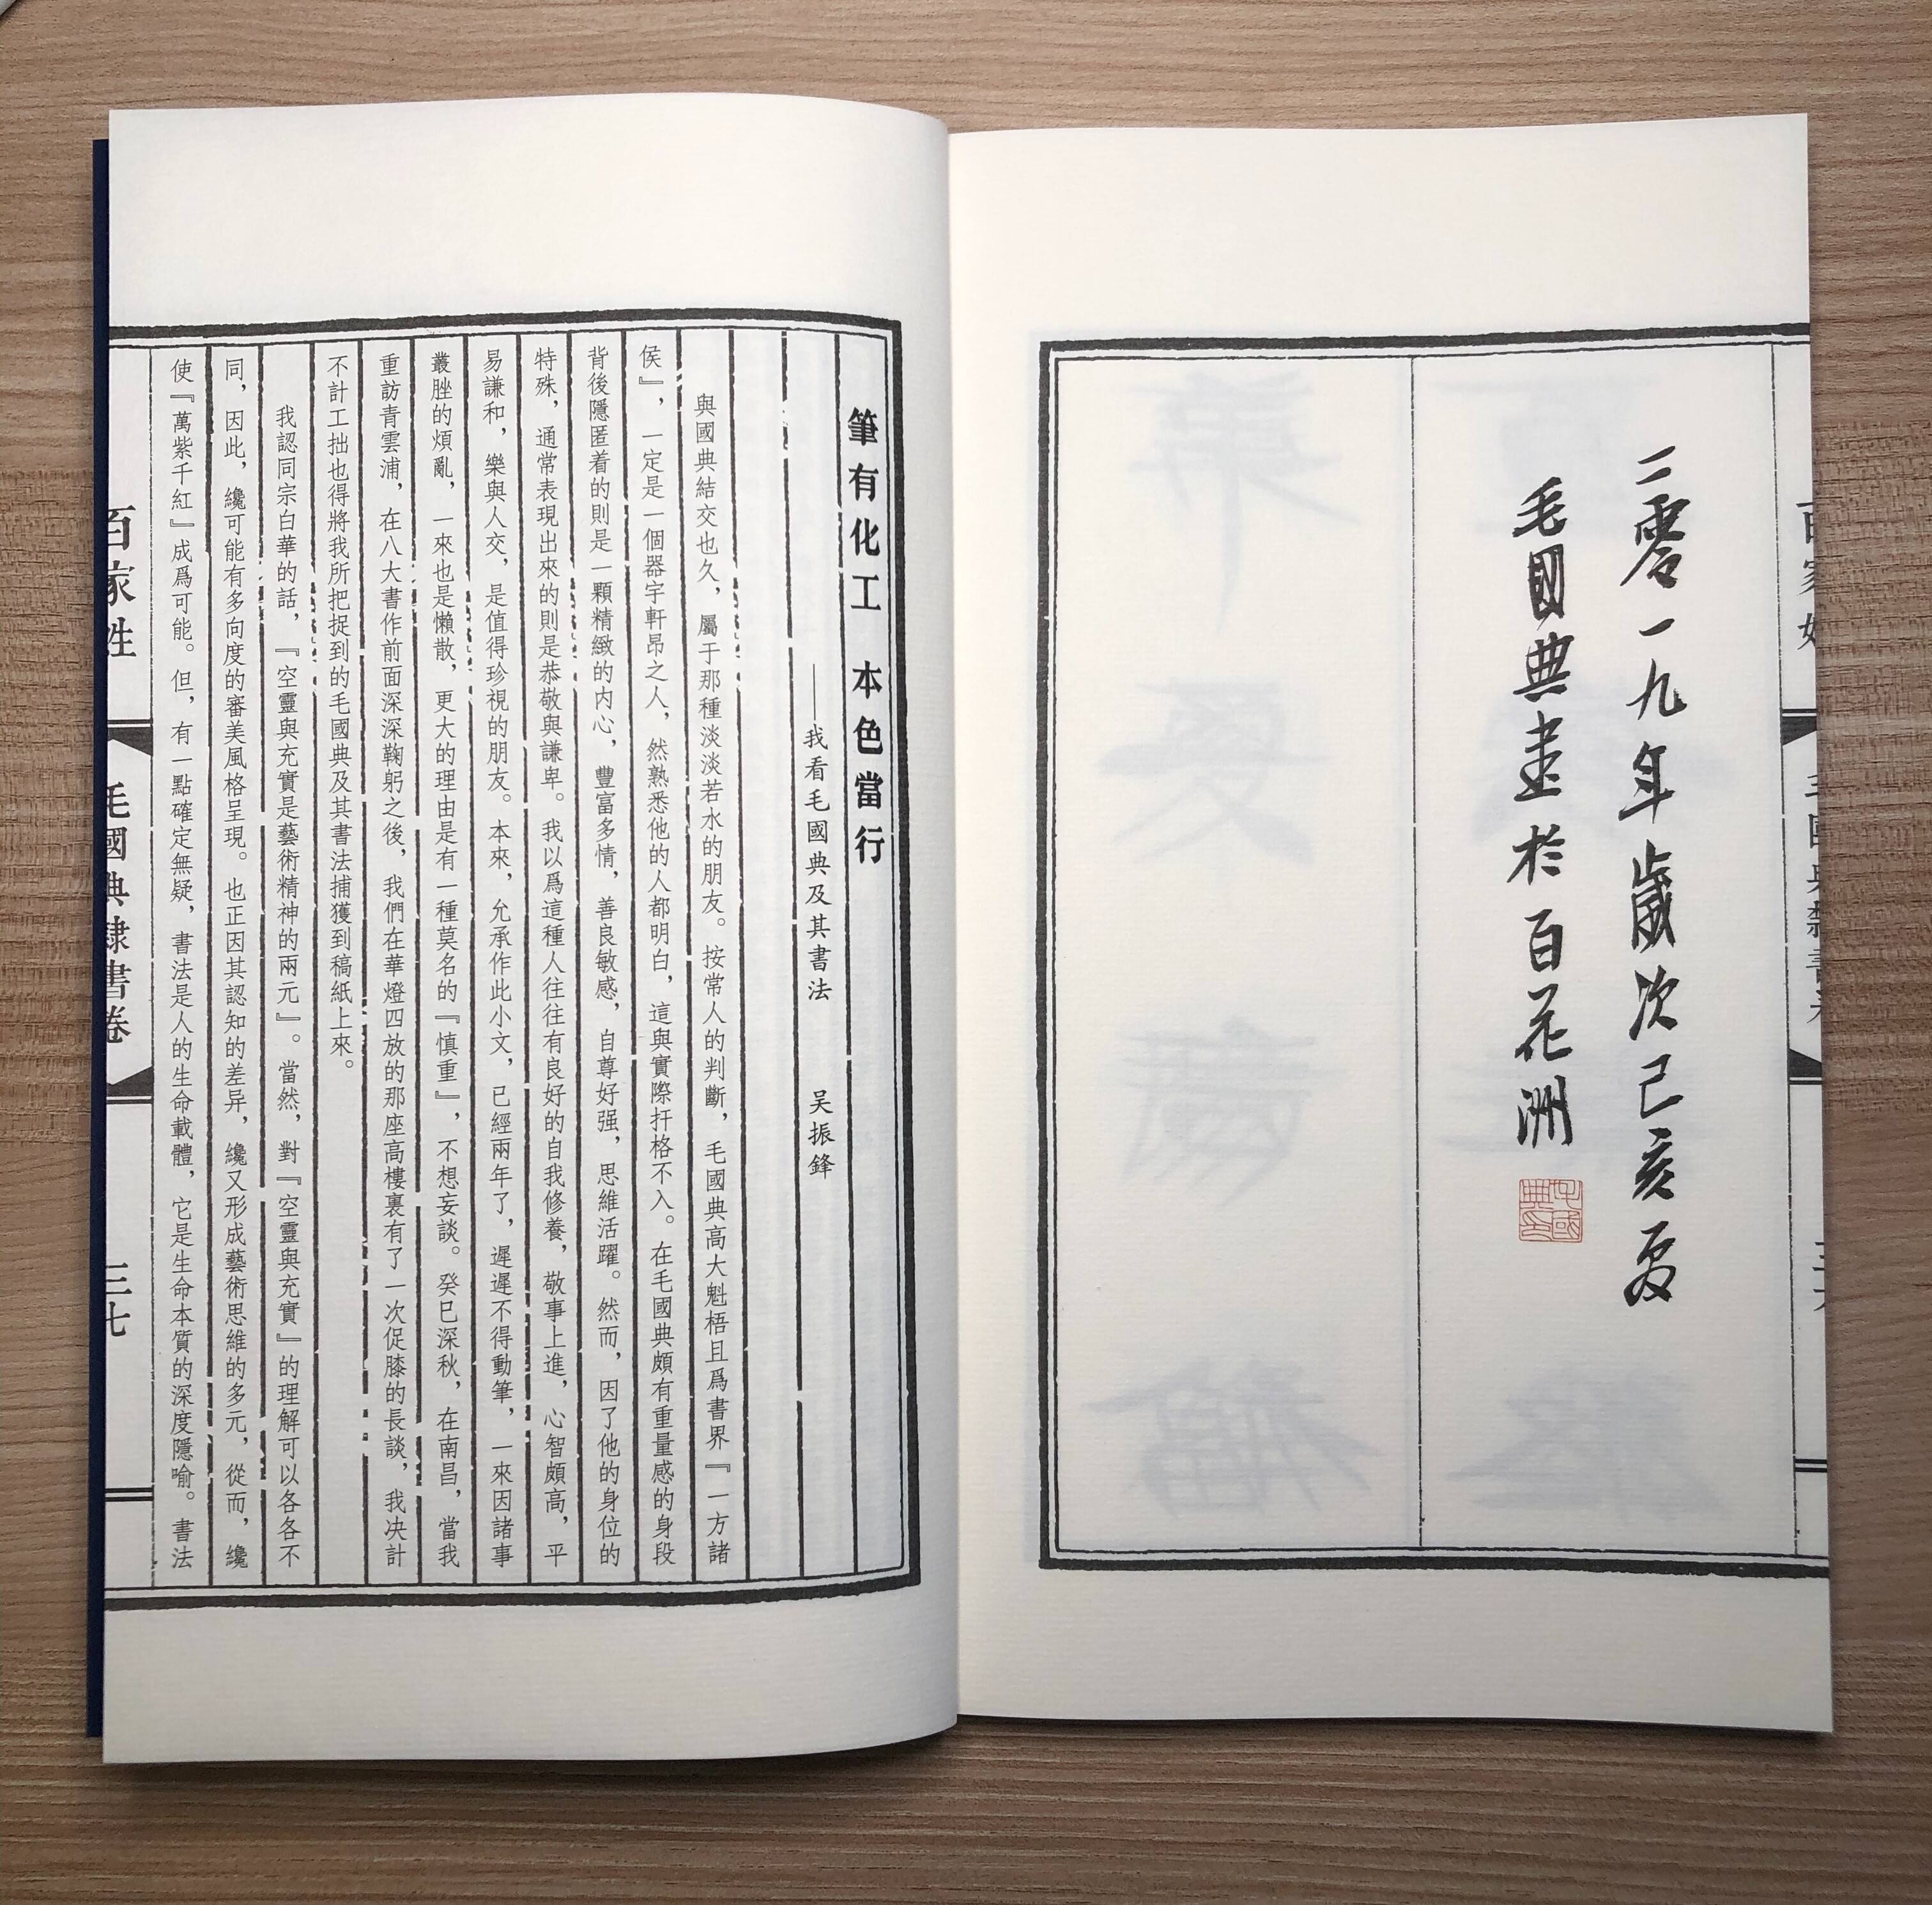 二零一九年歲次己亥夏
毛國典書於百花洲
筆有化工 本色當行
——我看毛國典及其書法 吴振鋒
與國典結交也久，屬于那種淡淡若水的朋友。按常人的判斷，毛國典高大魁梧且爲書界『一方諸
侯』，一定是一個器宇軒昂之人，然熟悉他的人都明白，這與實際扞格不入。在毛國典頗有重量感的身段
背後隱匿着的則是一顆精緻的内心，豐富多情，善良敏感，自尊好强，思維活躍。然而，因了他的身位的
特殊，通常表現出來的則是恭敬與謙卑。我以爲這種人往往有良好的自我修養，敬事上進，心智頗高，平
易謙和，樂與人交，是值得珍視的朋友。本來，允承作此小文，已經兩年了，遲遲不得動筆，一來因諸事
叢脞的煩亂，一來也是懶散，更大的理由是有一種莫名的『慎重』，不想妄談。癸巳深秋，在南昌，當我
重訪青雲浦，在八大書作前面深深鞠躬之後，我們在華燈四放的那座高樓裏有了一次促膝的長談，我决計
不計工拙也得將我所把捉到的毛國典及其書法捕獲到稿紙上來。
我認同宗白華的話，『空靈與充實是藝術精神的兩元』。當然，對『空靈與充實』的理解可以各各不
同，因此，纔可能有多向度的審美風格呈現。也正因其認知的差异，纔又形成藝術思維的多元，從而，纔
使『萬紫千紅』成爲可能。但，有一點確定無疑，書法是人的生命載體，它是生命本質的深度隱喻。書法
百家姓 毛國典隸書卷 三七